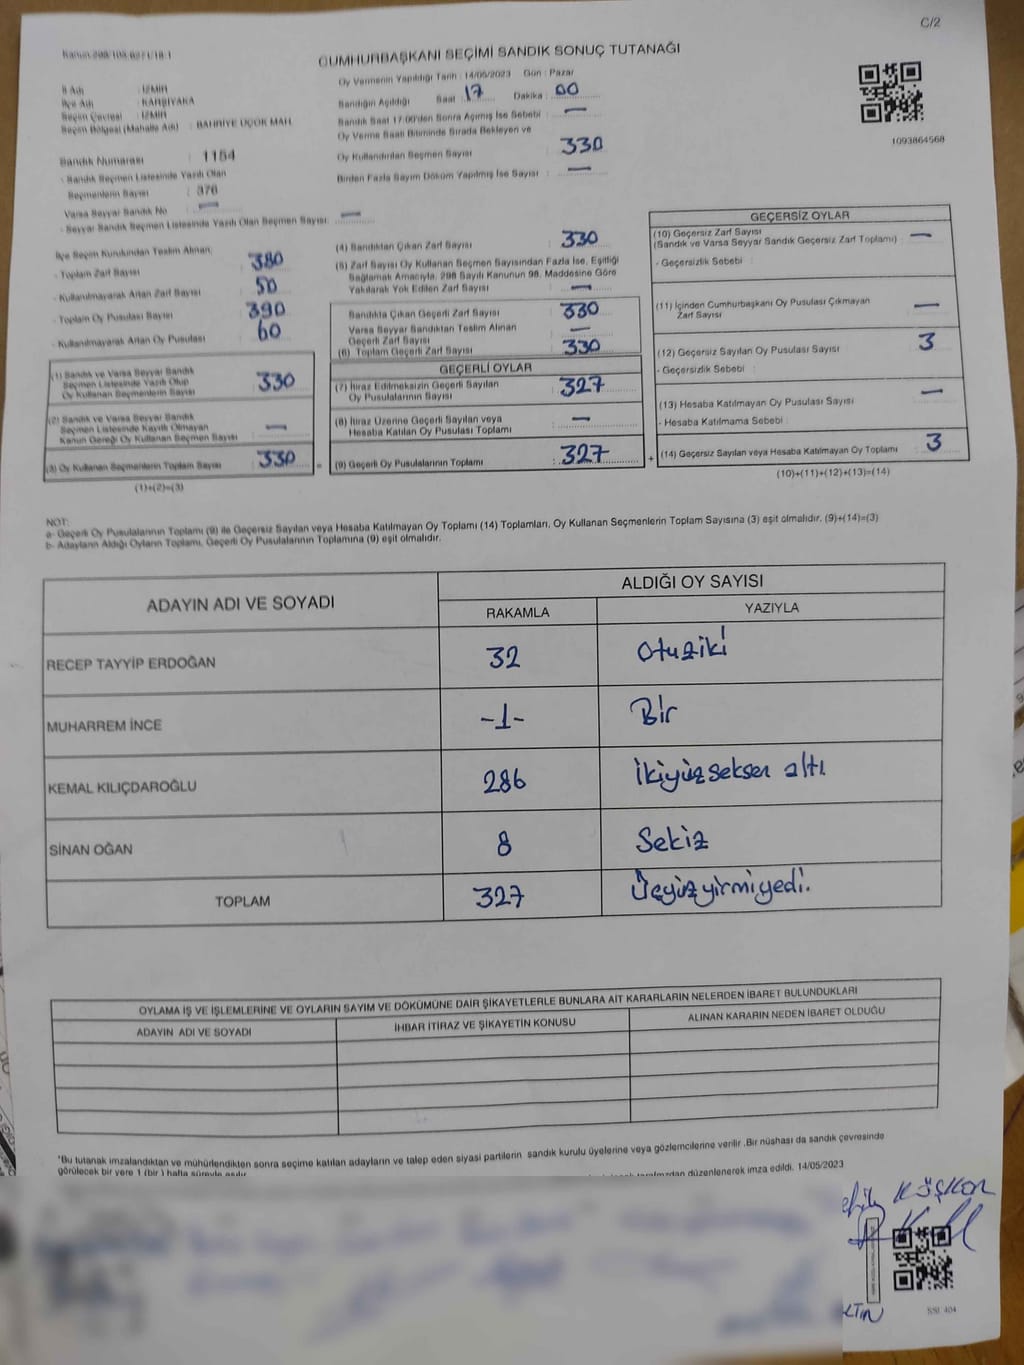 C/2
CUMHURBAŞKANI SEÇİMİ SANDIK SONUÇ TUTANAĞI
Oy Vermenin Yapıldığı Tarih : 14/05/2023 Gün : Pazar
Sandığın Açıldığı Saat : 17 Dakika : 00
Sandık Saat 17:00'den Sonra Açılmış İse Sebebi : —
Oy Verme Saati Bitiminde Sırada Bekleyen ve
Oy Kullandırılan Seçmen Sayısı : 330
Birden Fazla Sayım Döküm Yapılmış İse Sayısı : —
1093864568
İl Adı : İZMİR
İlçe Adı : KARŞIYAKA
Seçim Çevresi : İZMİR
Seçim Bölgesi (Mahalle Adı) : BAHRİYE ÜÇOK MAH.
Sandık Numarası : 1154
- Sandık Seçmen Listesinde Yazılı Olan
Seçmenlerin Sayısı : 376
Varsa Seyyar Sandık No : —
- Seyyar Sandık Seçmen Listesinde Yazılı Olan Seçmen Sayısı: —
İlçe Seçim Kurulundan Teslim Alınan;
- Toplam Zarf Sayısı : 380
- Kullanılmayarak Artan Zarf Sayısı : 50
- Toplam Oy Pusulası Sayısı : 390
- Kullanılmayarak Artan Oy Pusulası : 60
(1) Sandık ve Varsa Seyyar Sandık
Seçmen Listesinde Yazılı Olup
Oy Kullanan Seçmenlerin Sayısı : 330
(2) Sandık ve Varsa Seyyar Sandık
Seçmen Listesinde Kayıtlı Olmayan
Kanun Gereği Oy Kullanan Seçmen Sayısı : —
(3) Oy Kullanan Seçmenlerin Toplam Sayısı : 330
(1)+(2)=(3)
(4) Sandıktan Çıkan Zarf Sayısı : 330
(5) Zarf Sayısı Oy Kullanan Seçmen Sayısından Fazla İse, Eşitliği
Sağlamak Amacıyla, 298 Sayılı Kanunun 98. Maddesine Göre
Yakılarak Yok Edilen Zarf Sayısı : —
Sandıkta Çıkan Geçerli Zarf Sayısı : 330
Varsa Seyyar Sandıktan Teslim Alınan
Geçerli Zarf Sayısı : —
(6) Toplam Geçerli Zarf Sayısı : 330
GEÇERLİ OYLAR
(7) İtiraz Edilmeksizin Geçerli Sayılan
Oy Pusulalarının Sayısı : 327
(8) İtiraz Üzerine Geçerli Sayılan veya
Hesaba Katılan Oy Pusulası Toplamı : —
(9) Geçerli Oy Pusulalarının Toplamı : 327
GEÇERSİZ OYLAR
(10) Geçersiz Zarf Sayısı
(Sandık ve Varsa Seyyar Sandık Geçersiz Zarf Toplamı) : —
- Geçersizlik Sebebi :
(11) İçinden Cumhurbaşkanı Oy Pusulası Çıkmayan
Zarf Sayısı : —
(12) Geçersiz Sayılan Oy Pusulası Sayısı : 3
- Geçersizlik Sebebi :
(13) Hesaba Katılmayan Oy Pusulası Sayısı : —
- Hesaba Katılmama Sebebi :
(14) Geçersiz Sayılan veya Hesaba Katılmayan Oy Toplamı : 3
(10)+(11)+(12)+(13)=(14)
NOT:
a- Geçerli Oy Pusulalarının Toplamı (9) ile Geçersiz Sayılan veya Hesaba Katılmayan Oy Toplamı (14) Toplamları, Oy Kullanan Seçmenlerin Toplam Sayısına (3) eşit olmalıdır. (9)+(14)=(3)
b- Adayların Aldığı Oyların Toplamı, Geçerli Oy Pusulalarının Toplamına (9) eşit olmalıdır.
ADAYIN ADI VE SOYADI ALDIĞI OY SAYISI
RAKAMLA YAZIYLA
RECEP TAYYİP ERDOĞAN 32 Otuziki
MUHARREM İNCE -1- Bir
KEMAL KILIÇDAROĞLU 286 İkiyüz seksen altı
SİNAN OĞAN 8 Sekiz
TOPLAM 327 Üçyüzyirmiyedi.
OYLAMA İŞ VE İŞLEMLERİNE VE OYLARIN SAYIM VE DÖKÜMÜNE DAİR ŞİKAYETLERLE BUNLARA AİT KARARLARIN NELERDEN İBARET BULUNDUKLARI
ADAYIN ADI VE SOYADI İHBAR İTİRAZ VE ŞİKAYETİN KONUSU ALINAN KARARIN NEDEN İBARET OLDUĞU
*Bu tutanak imzalandıktan ve mühürlendikten sonra seçime katılan adayların ve talep eden siyasi partilerin sandık kurulu üyelerine veya gözlemcilerine verilir .Bir nüshası da sandık çevresinde
görülecek bir yere 1 (bir ) hafta süreyle asılır. tarafından düzenlenerek imza edildi. 14/05/2023